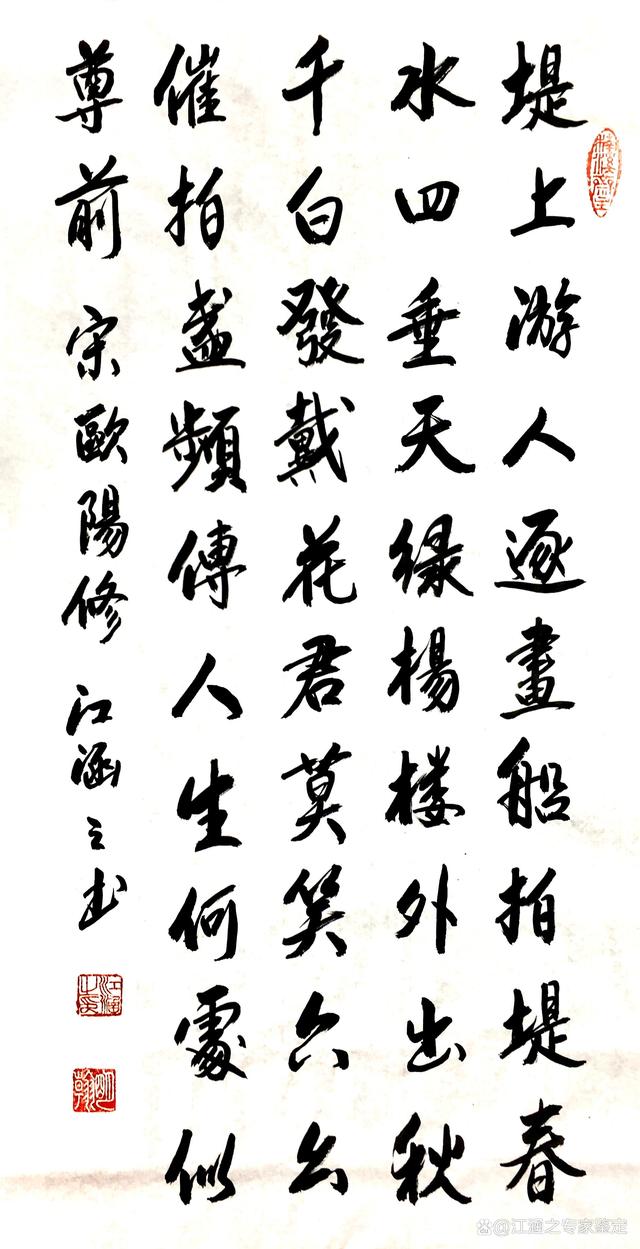 堤上游人逐畫船拍堤春
水四垂天緑楊楼外出秋
千白發戴花君莫笑六幺
催拍盞頻傳人生何處似
尊前 宋歐陽修 江涵之书
江涵之印
@江涵之专家鉴定